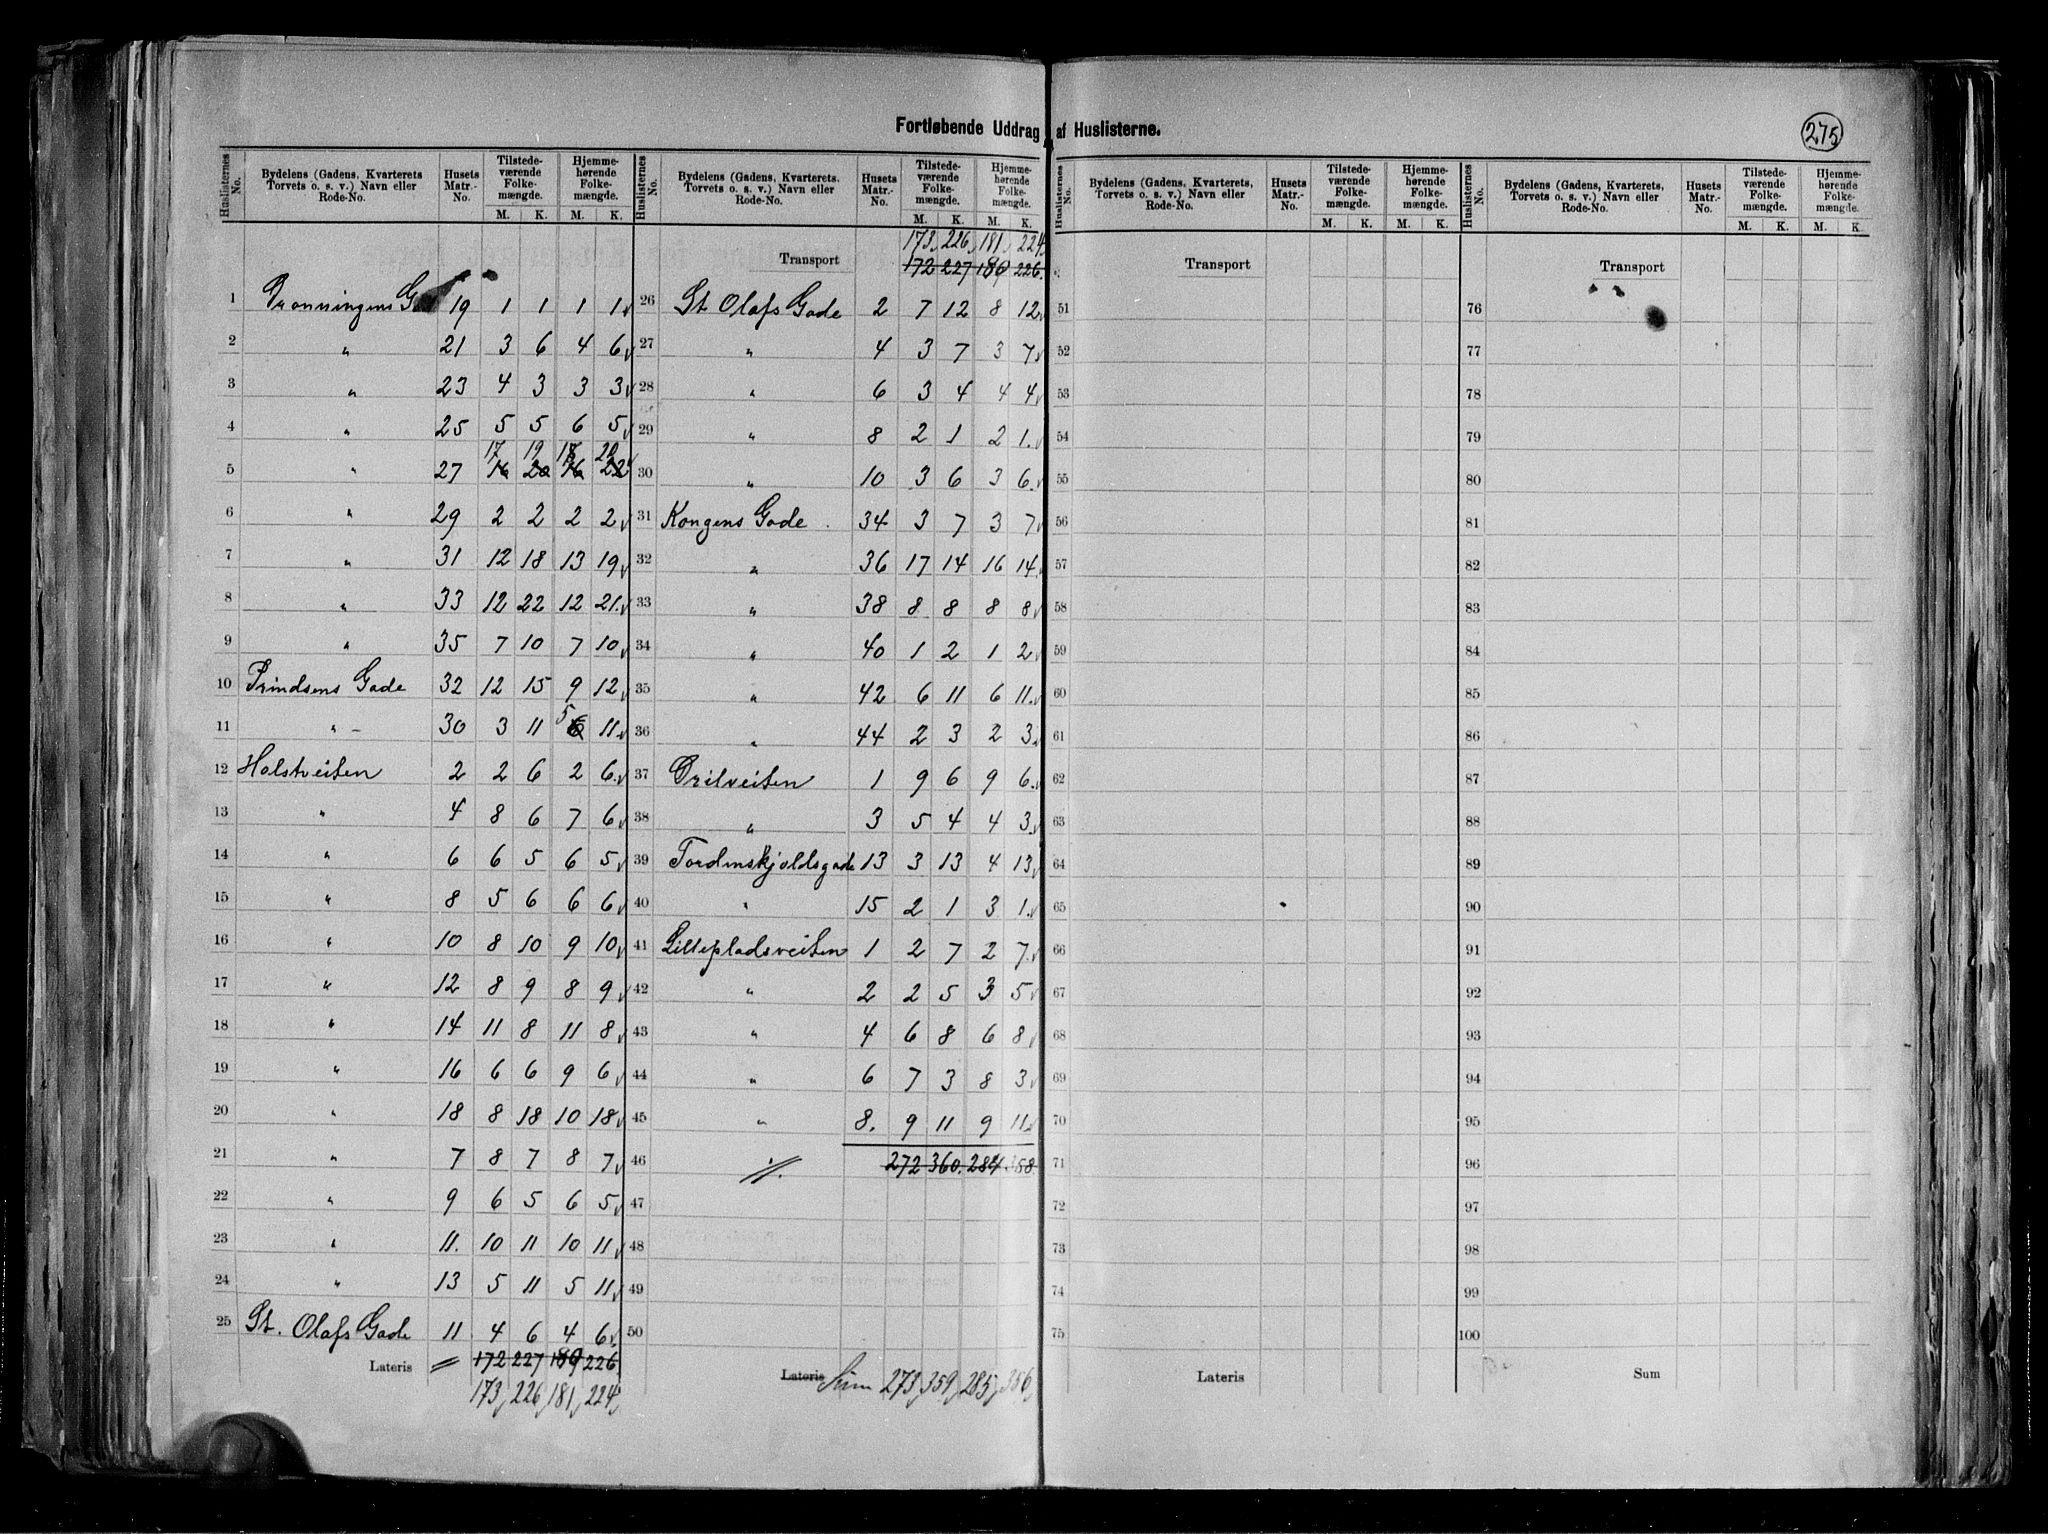 Fortløbende Uddrag af Huslisterne.
275
Huslisternes No. | Bydelens (Gadens, Kvarterets Torvets o. s. v.) Navn eller Rode-No. | Husets Matr.-No. | Tilstedeværende Folkemængde. M. K. | Hjemmehørende Folkemængde. M. K.
1 Dronningens G 19 1 1 1 1
2 " 21 3 6 4 6
3 " 23 4 3 3 3
4 " 25 5 5 6 5
17 19 18 20
5 " 27 16 20 16 22
6 " 29 2 2 2 2
7 " 31 12 18 13 19
8 " 33 12 22 12 21
9 " 35 7 10 7 10
10 Prindsens Gade 32 12 15 9 12
11 " - 30 3 11 5 6 11
12 Holstveiten 2 2 6 2 6
13 " 4 8 6 7 6
14 " 6 6 5 6 5
15 " 8 5 6 6 6
16 " 10 8 10 9 10
17 " 12 8 9 8 9
18 " 14 11 8 11 8
19 " 16 6 6 9 6
20 " 18 8 18 10 18
21 " 7 8 7 8 7
22 " 9 6 5 6 5
23 " 11. 10 11 10 11
24 " 13 5 11 5 11
25 St. Olafs Gade 11 4 6 4 6
Lateris 172 227 180 226
173 226 181 224
Huslisternes No. | Bydelens (Gadens, Kvarterets, Torvets o. s. v.) Navn eller Rode-No. | Husets Matr.-No. | Tilstedeværende Folkemængde. M. K. | Hjemmehørende Folkemængde. M. K.
173 226 181 224
Transport 172 227 180 226
26 St Olafs Gade 2 7 12 8 12
27 " 4 3 7 3 7
28 " 6 3 4 4 4
29 " 8 2 1 2 1
30 " 10 3 6 3 6
31 Kongens Gade 34 3 7 3 7
32 " 36 17 14 16 14
33 " 38 8 8 8 8
34 " 40 1 2 1 2
35 " 42 6 11 6 11
36 " 44 2 3 2 3
37 Grilveiten 1 9 6 9 6
38 " 3 5 4 4 3
39 Tordenskjoldsgade 13 3 13 4 13
40 " 15 2 1 3 1
41 Lillepladsveiten 1 2 7 2 7
42 " 2 2 5 3 5
43 " 4 6 8 6 8
44 " 6 7 3 8 3
45 " 8. 9 11 9 11
46 272 360 284 358
47
48
49
50
Lateris Sum 273 359 285 356
Huslisternes No. | Bydelens (Gadens, Kvarterets, Torvets o. s. v.) Navn eller Rode-No. | Husets Matr.-No. | Tilstedeværende Folkemængde. M. K. | Hjemmehørende Folkemængde. M. K.
Transport
51
52
53
54
55
56
57
58
59
60
61
62
63
64
65
66
67
68
69
70
71
72
73
74
75
Lateris
Huslisternes No. | Bydelens (Gadens, Kvarterets, Torvets o. s. v.) Navn eller Rode-No. | Husets Matr.-No. | Tilstedeværende Folkemængde. M. K. | Hjemmehørende Folkemængde. M. K.
Transport
76
77
78
79
80
81
82
83
84
85
86
87
88
89
90
91
92
93
94
95
96
97
98
99
100
Sum